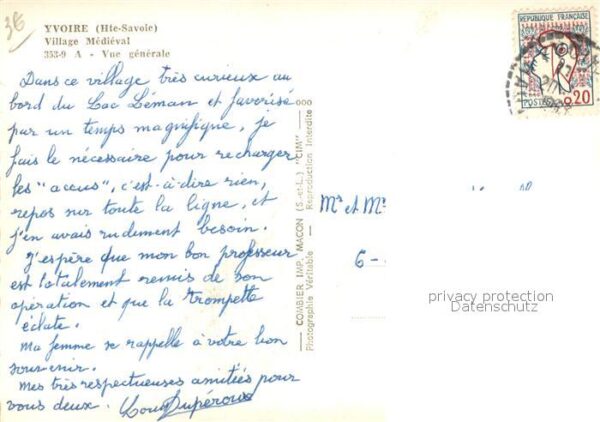 38
YVOIRE (Hte-Savoie)
Village Médiéval
353-9 A - Vue générale
Dans ce village très curieux au
bord du Lac Léman et favorisé
par un temps magnifique, je
fais le nécessaire pour recharger
les "accus", c'est-à-dire rien,
repos sur toute la ligne, et
j'en avais rudement besoin.
J'espère que mon bon professeur
est totalement remis de son
opération et que la trompette
éclate.
Ma femme se rappelle à votre bon
souvenir.
Mes très respectueuses amitiés pour
vous deux. Dupéroux
COMBIER IMP. MACON (S.-et-L.) "CIM"
Photographie Véritable - Reproduction Interdite
REPUBLIQUE FRANÇAISE
POSTES 0,20
Mr et Me
6-
privacy protection
Datenschutz